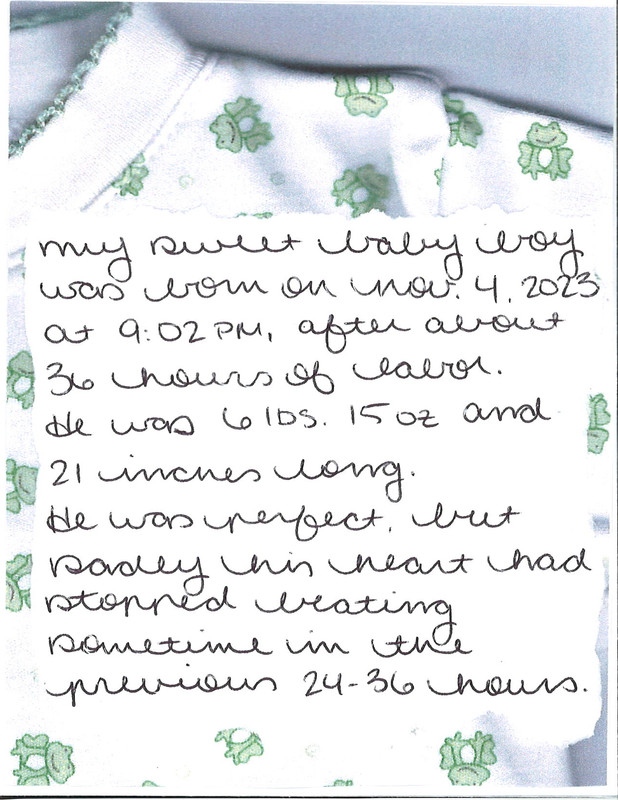 My sweet baby boy
was born on Nov. 4, 2023
at 9:02 PM, after about
36 hours of labor.
He was 6 lbs. 15 oz and
21 inches long.
He was perfect, but
sadley his heart had
stopped beating
sometime in the
previous 24-36 hours.